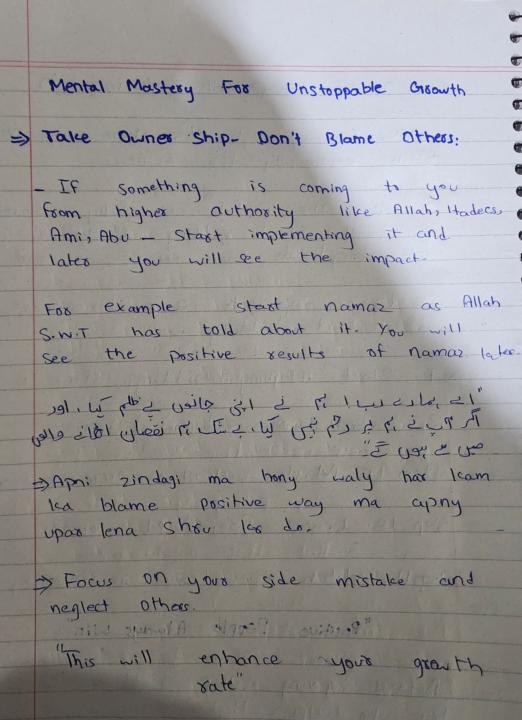 Mental Mastery For Unstoppable Growth
⇒ Take Owner Ship- Don't Blame Others:
- If something is coming to you
from higher authority like Allah, Hadees,
Ami, Abu – Start implementing it and
later you will see the impact.
For example start namaz as Allah
S.W.T has told about it. You will
see the positive results of namaz later.
"اے ہمارے رب! ہم نے اپنی جانوں پے ظلم کیا، اور
اگر آپ نے ہم پر رحم نہیں کیا، بے شک ہم نقصان اٹھانے والوں
میں سے ہوں گے"
⇒ Apni zindagi ma hony waly har kam
ka blame positive way ma apny
upar lena shru kr do.
⇒ Focus on your side mistake and
neglect others.
"This will enhance your growth
rate"